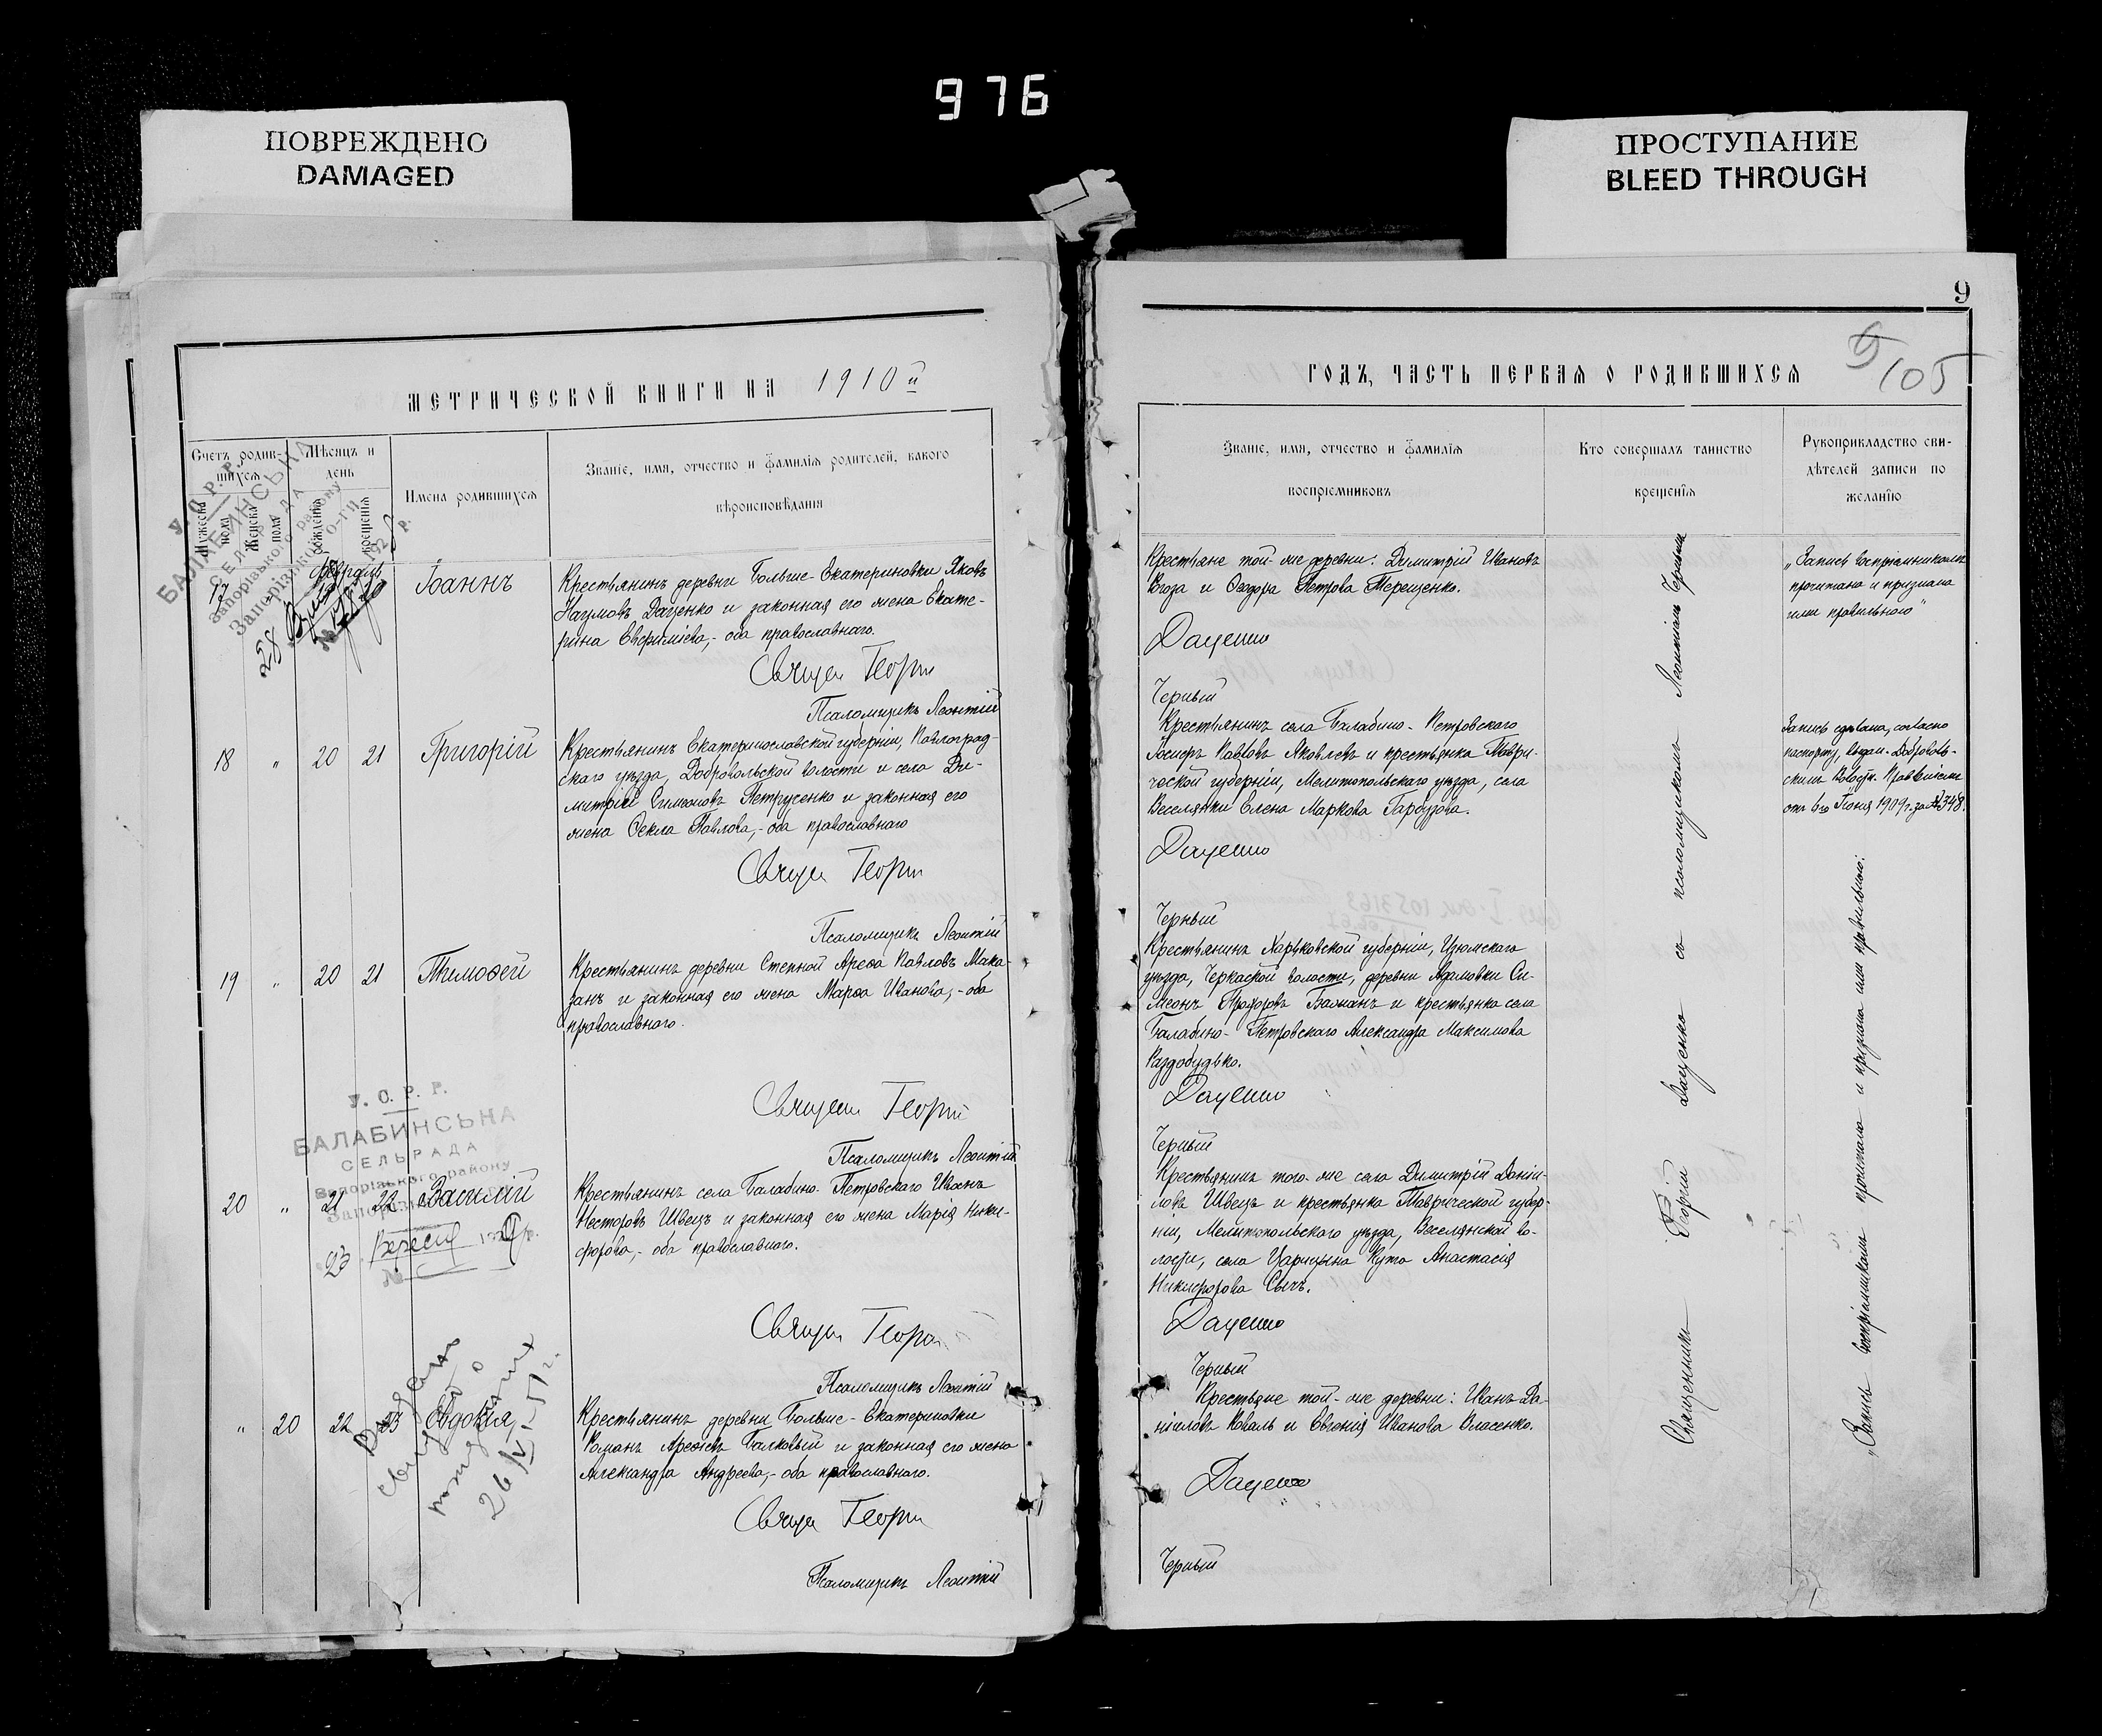 976
ПОВРЕЖДЕНО
DAMAGED
ПРОСТУПАНИЕ
BLEED THROUGH
МЕТРИЧЕСКОЙ КНИГИ НА 1910й
Счетъ родив-
шихся
Мѣсяцъ и
день
Мужеска пола
Женска пола
рожденія
крещенія
Имена родившихся
Званіе, имя, отчество и фамилія родителей, какого
вѣроисповѣданія
У. С. Р. Р.
БАЛАБИНСЬКА
СЕЛЬРАДА
Запорізького району
Февраль
17
Іоаннъ
Крестьянинъ деревни Больше-Екатериновки Яковъ
Наумовъ Даценко и законная его жена Екате-
рина Евфиміева,- оба православнаго.
Свящ Георгі
Псаломщикъ Леонтій
18 " 20 21 Григорій
Крестьянинъ Екатеринославской губерніи, Павлоград-
скаго уѣзда, Добровольской волости и села Ди-
митрій Симеоновъ Петрусенко и законная его
жена Ѳекла Павлова,- оба православнаго
Свящ Георгі
Псаломщикъ Леонтій
19 " 20 21 Тимоѳей
Крестьянинъ деревни Степной Ареѳа Павловъ Мака-
занъ и законная его жена Марѳа Иванова,- оба
православнаго.
Свящ Георгі
Псаломщикъ Леонтій
У. С. Р. Р.
БАЛАБИНСЬКА
СЕЛЬРАДА
Запорізького району
20 " 21 22 Василій
Крестьянинъ села Балабино-Петровскаго Иванъ
Несторовъ Швецъ и законная его жена Марія Ники-
форова,- оба православнаго.
23 Вересня
№
Свящ Георгі
Псаломщикъ Леонтій
" 20 22 23 Евдокія
Крестьянинъ деревни Больше-Екатериновки
Романъ Ареѳіевъ Балковый и законная его жена
Александра Андреева,- оба православнаго.
Свящ Георгі
Псаломщикъ Леонтій
9
9/105
ГОДЪ, ЧАСТЬ ПЕРВАЯ О РОДИВШИХСЯ
Званіе, имя, отчество и фамилія
воспріемниковъ
Кто совершалъ таинство
крещенія
Рукоприкладство сви-
дѣтелей записи по
желанію
Крестьяне той-же деревни: Димитрій Ивановъ
Козa и Ѳеодора Петрова Терещенко.
Даценко
Черный
„Запись воспріемниками
прочитана и признана
ими правильною"
Крестьянинъ села Балабино-Петровскаго
Іосифъ Павловъ Яковлевъ и крестьянка Таври-
ческой губерніи, Мелитопольскаго уѣзда, села
Веселянки Елена Маркова Гарбузова.
Даценко
Черный
Запись сдѣлана, согласно
паспорту, выдан. Доброволь-
скимъ Волостн. Правленіемъ
отъ 6го Іюня 1909г. за №348.
Крестьянинъ Харьковской губерніи, Изюмскаго
уѣзда, Черкаской волости, деревни Адамовки Си-
меонъ Прохоровъ Балканъ и крестьянка села
Балабино-Петровскаго Александра Максимова
Раздобудько.
Даценко
Черный
Крестьянинъ того-же села Димитрій Даніи-
ловъ Швецъ и крестьянка Таврической губер-
ніи, Мелитопольскаго уѣзда, Веселянской во-
лости, села Царицына Кута Анастасія
Никифорова Сычъ.
Даценко
Черный
Крестьяне той-же деревни: Иванъ Да-
ніиловъ Коваль и Евгенія Иванова Власенко.
Даценко
Черный
Священникъ Георгій Даценко съ псаломщикомъ Леонтіемъ Чернымъ
„Запись воспріемниками прочитана и признана ими правильною.